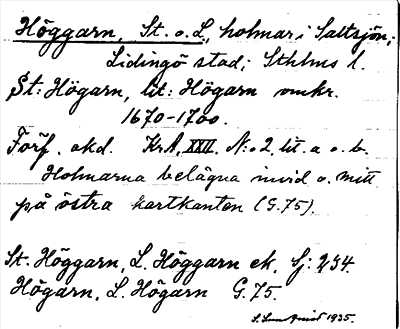 Höggarn, St. o. L., holmar i Saltsjön,
Lidingö stad, Sthlms l.
St: Högarn, lit: Högarn omkr.
1670-1700.
Förf. okd. Kr.A. XXII. N:o 2. lit. a o. b.
Holmarna belägna invid o. mitt
på östra kartkanten (G. 75).
St. Höggarn, L. Höggarn ek. Sj: 234.
Högarn, L. Högarn G. 75.
1935.